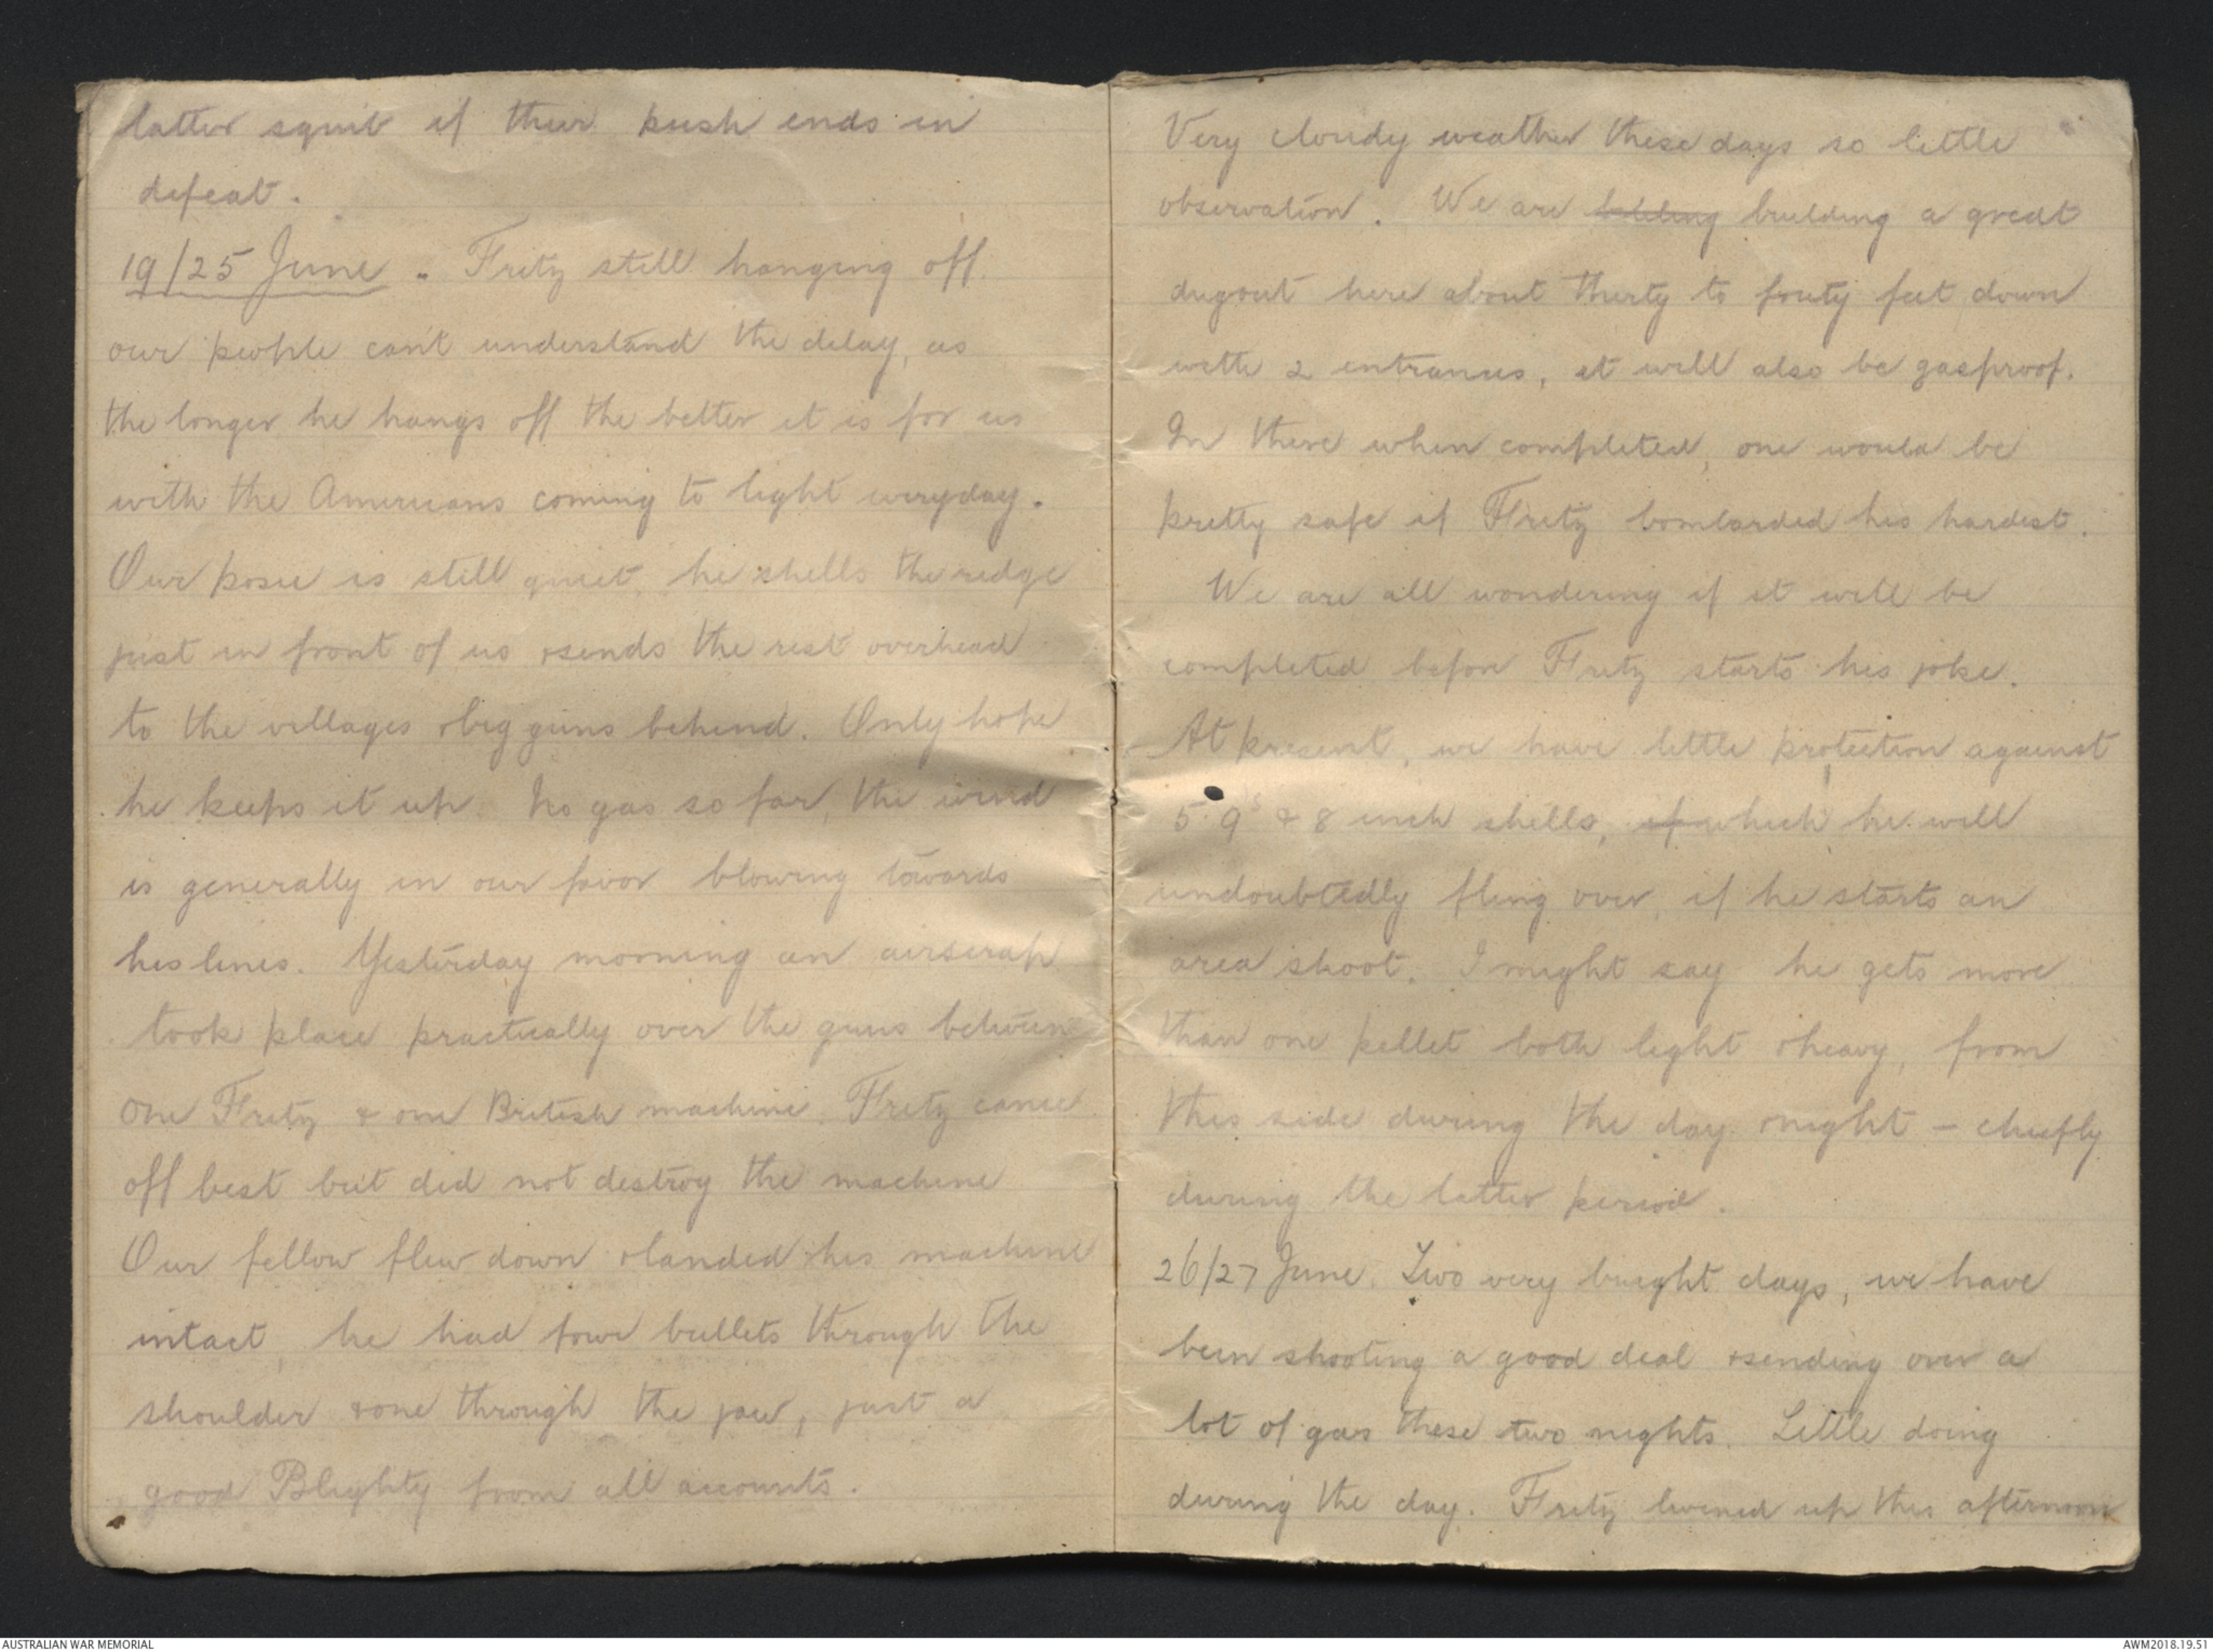 latter squib if their push ends in
defeat.
19/25 June. Fritz still hanging off
our people can't understand the delay, as
the longer he hangs off the better it is for us
with the Americans coming to light everyday.
Our posie is still quiet, he shells the ridge
just in front of us & sends the rest overhead
to the villages & big guns behind. Only hope
he keeps it up. No gas so far, the wind
is generally in our favor blowing towards
his lines. Yesterday morning an airscrap
took place practically over the guns between
one Fritz & one British machine. Fritz came
off best but did not destroy the machine
Our fellow flew down & landed his machine
intact, he had four bullets through the
shoulder & one through the jaw, just a
good Blighty from all accounts.
Very cloudy weather these days so little
observation. We are building a great
dugout here about thirty to fourty feet down
with 2 entrances, it will also be gasproof.
In there when completed, one would be
pretty safe if Fritz bombarded his hardest.
We are all wondering if it will be
completed before Fritz starts his joke.
At present, we have little protection against
5.9's & 8 inch shells, if which he will
undoubtedly fling over, if he starts an
area shoot. I might say he gets more
than one pellet both light & heavy, from
this side during the day & night - chiefly
during the latter period.
26/27 June. Two very bright days, we have
been shooting a good deal & sending over a
lot of gas these two nights. Little doing
during the day. Fritz livened up this afternoon
AUSTRALIAN WAR MEMORIAL
AWM2018.19.51